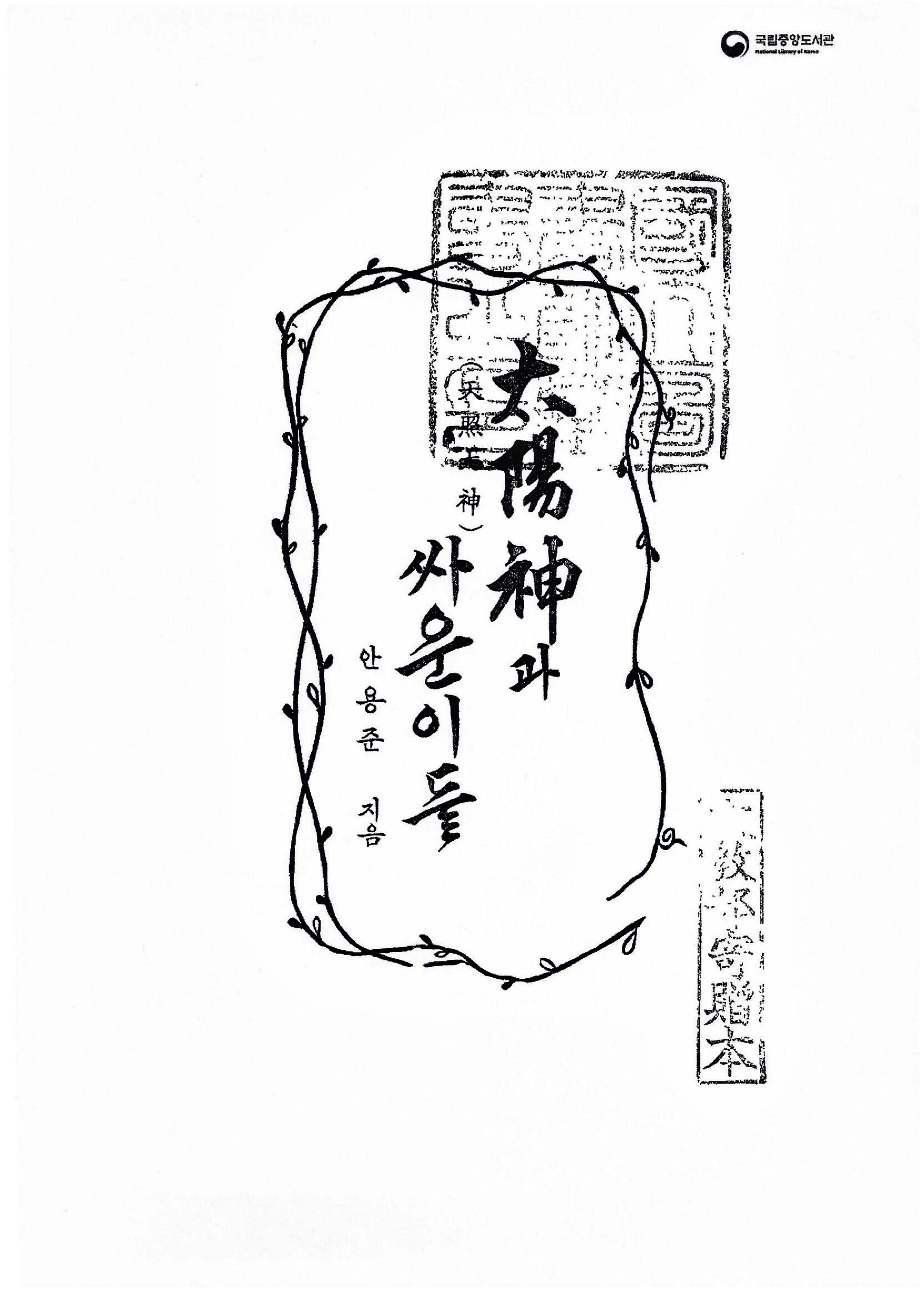 국립중앙도서관
National Library of Korea
太陽神과
(天照大神)
싸운이들
안용준 지음
敎部寄贈本